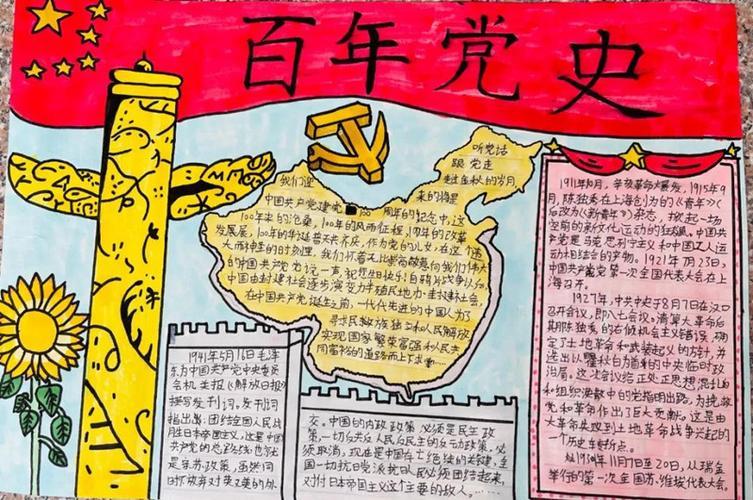 百年党史
听党话
跟党走
走过金秋的岁月,
我们迎
来的将是
中国共产党建党100周年的纪念中,这
100年来的沧桑,100年的风雨征程,100年的改革
发展展,100年的华诞普天共齐庆,作为党的儿女,在这个伟
大而神圣的时刻理,我们怀着无比崇高敬意向我们伟大
的中国共产党中说一声,祝您生日快乐!自鸦片战争以后,
中国由封建社会逐步演变为半殖民地为一封建社会,
在中国共产党诞生之前,一代代先进的中国人为了
寻求民族独立和人民解放
实现国家繁荣富强和人民共
同富裕的道路而上下求索……
1911年10月,辛亥革命大暴发,1915年9
月,陈独秀在上海创为的《青年》(
后改为《新青年》)杂志,掀起一场
空前的新文化运动的狂飙。中国共
产党是马克思列宁主义和中国工人运
动木目结合的产物。1921年7月23日,
中国共产党党第一次全国代表大会在上
海召开。
1927年,中共中央于8月7日在汉口
召开会议,即八七会议。清算大革命后
期陈独秀的右倾机会主义错误,确
定了土地革命和武装起义的方针,并
选出以瞿秋白为首的中央临时政
治局。这次会议给正处于思想混乱
和组织涣散中的党指明出路,为挽救
党和革命作出了巨大贡献。这是由
大革命失败到土地革命战争兴起的
一个历史车专折点。
1931年11月7日至20日,从瑞金
举行的第一次全国苏维埃代表大会。
1941年5月16日毛泽
东为中国共产党中央委员
会机关报《解放日报》
撰写发刊词。发刊词
指出:团结全国人民战
月生日本帝国主义,这是中国
共产党的总路线,也就
是宗苏政策,虽然同
时怀故弃对英又美的外
交。中国的内政政策,必须是民主政
策,一切反共丘人民反民主的反动政策,必
须取消,现在是中国存亡绝续的关键,全
国一切抗日党派抗日人民必须团结起来,
对付日本帝国主义这个主要的敌人。……